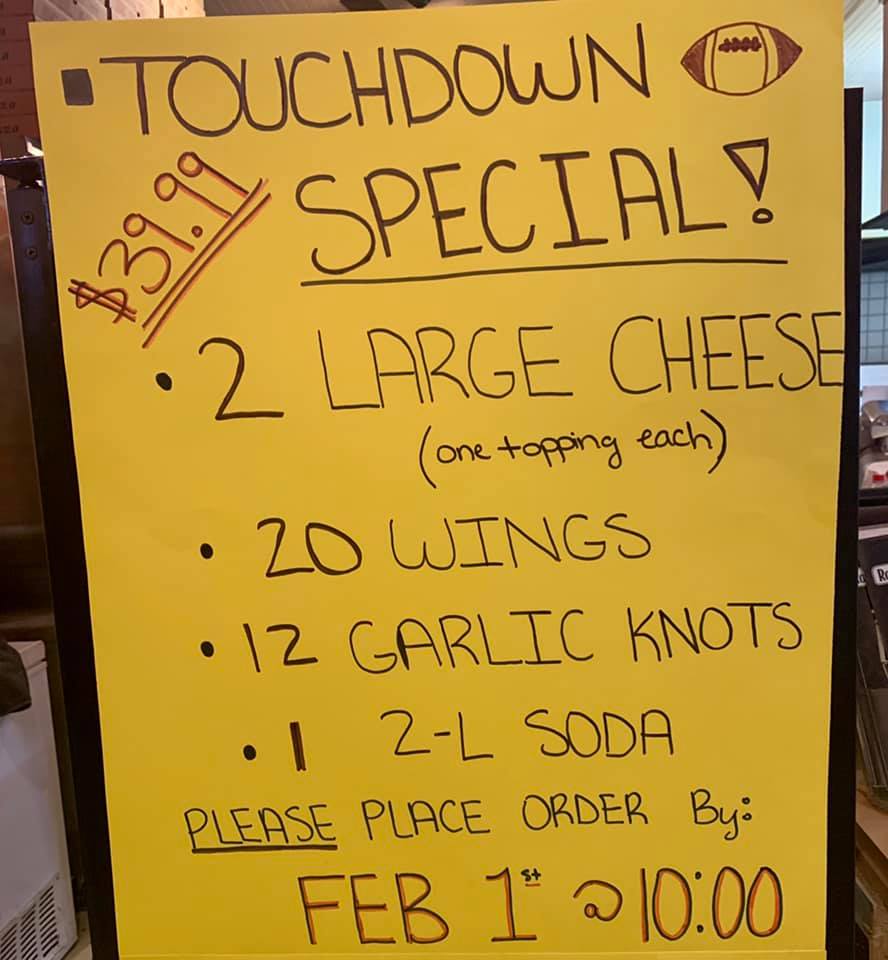 ▪ TOUCHDOWN
SPECIAL!
$39.99
• 2 LARGE CHEESE
(one topping each)
• 20 WINGS
• 12 GARLIC KNOTS
• 1 2-L SODA
PLEASE PLACE ORDER By:
FEB 1st @ 10:00